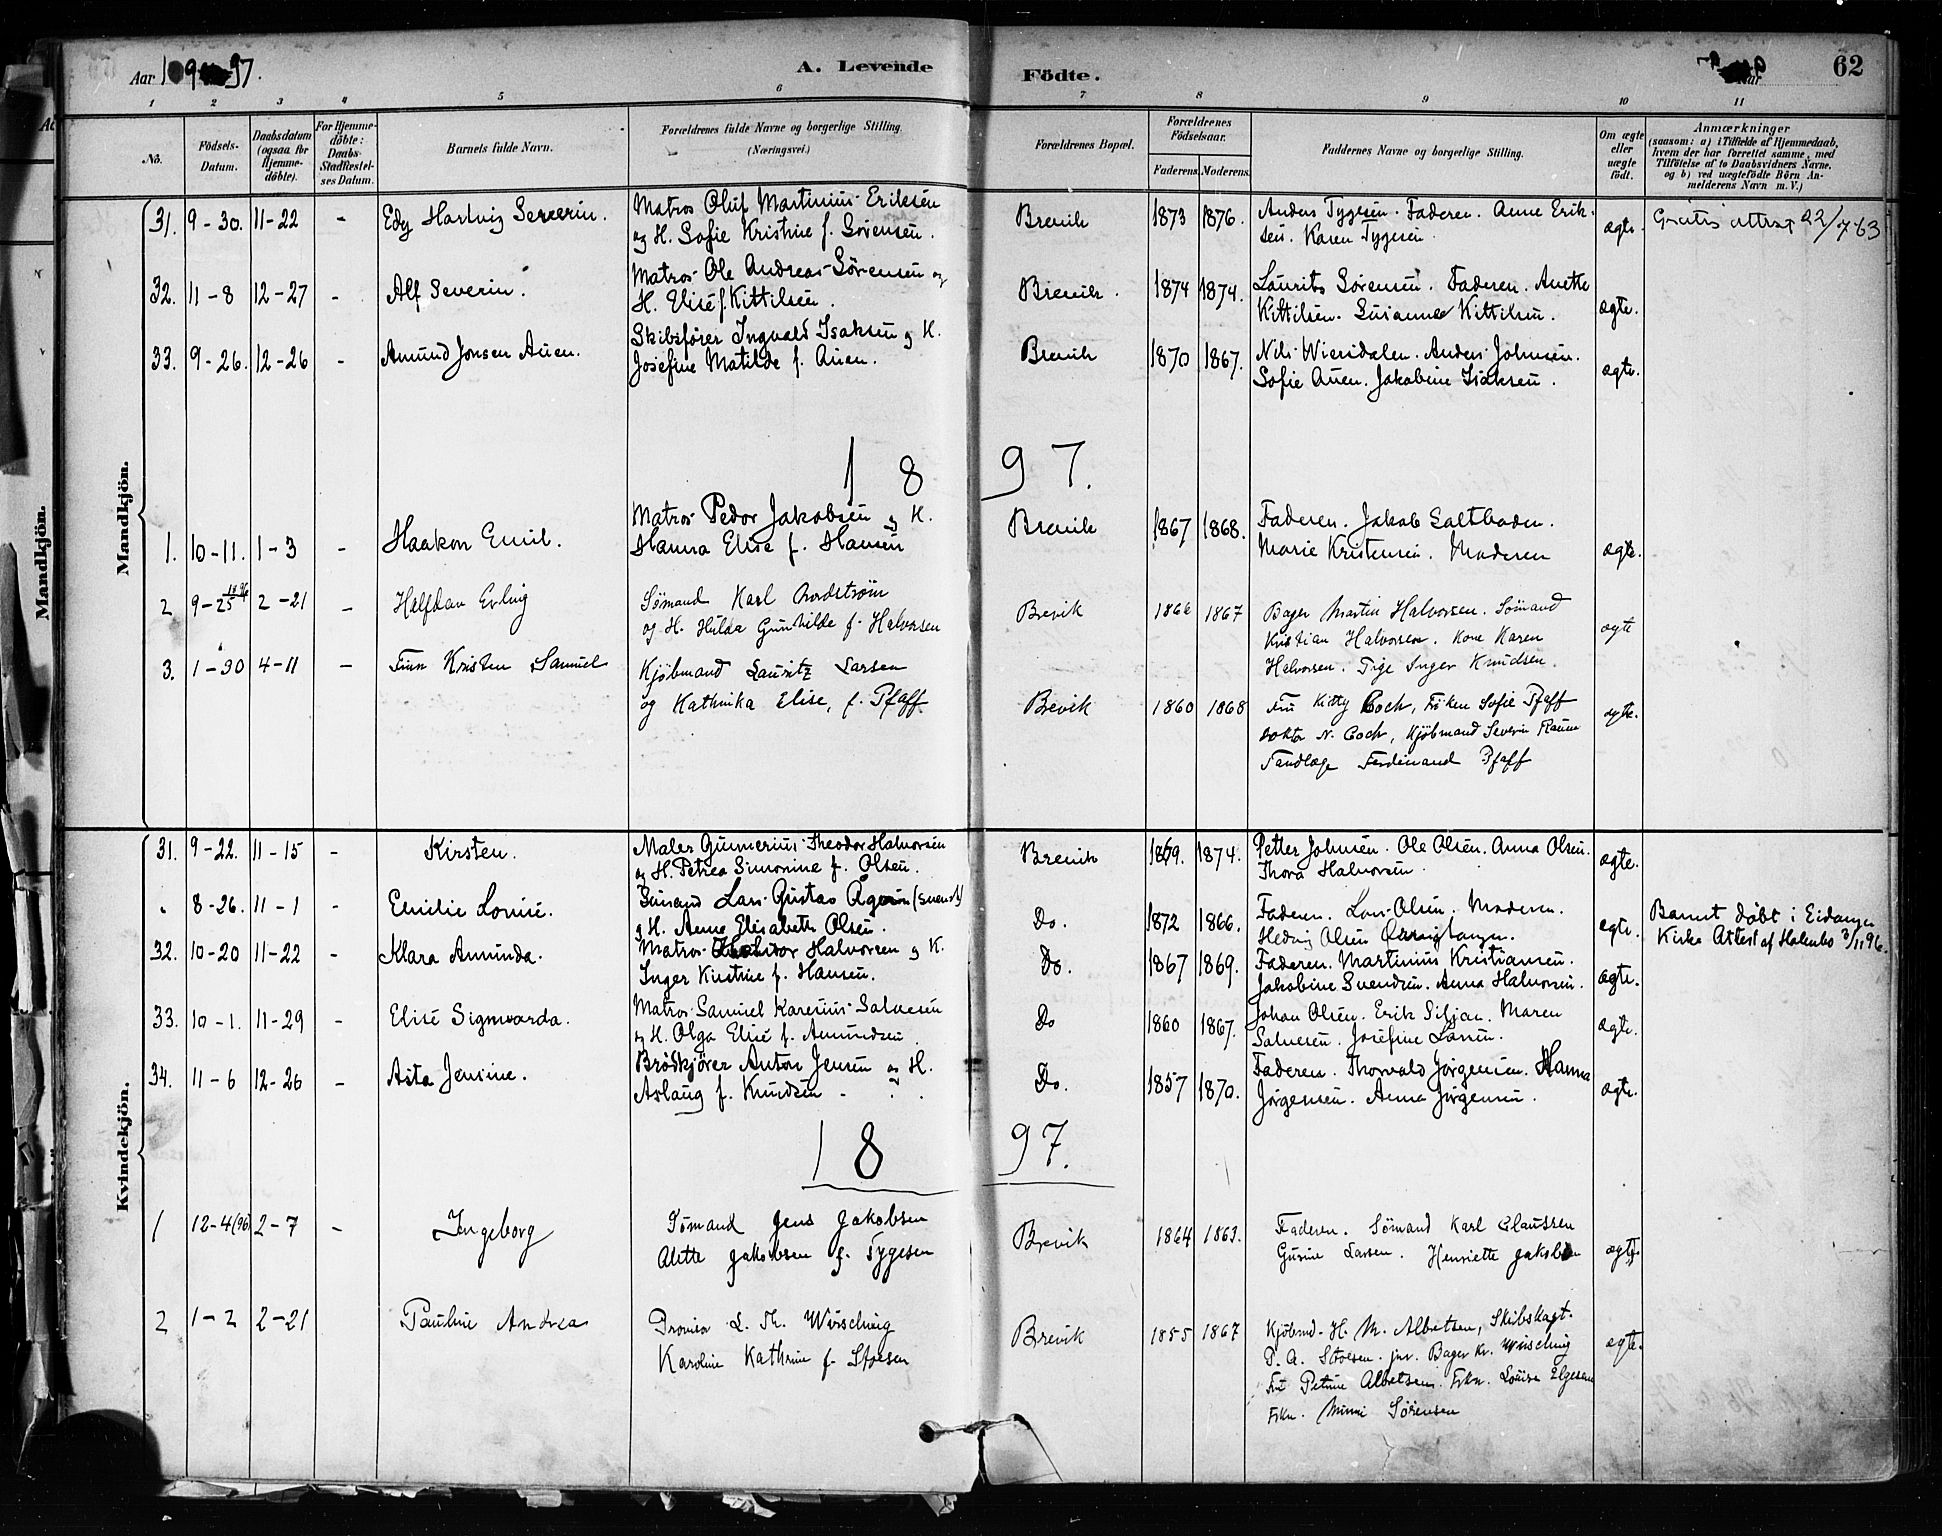 Aar
97.
A. Levende
Födte.
Aar
62
1 2 3 4 5 6 7 8 9 10 11
No.
Födsels-Datum.
Daabsdatum (ogsaa for Hjemme-döbte).
For Hjemme-döbte: Daabs-Stadfæstel-ses Datum.
Barnets fulde Navn.
Forældrenes fulde Navne og borgerlige Stilling.
(Næringsvei.)
Forældrenes Bopæl.
Forældrenes Födselsaar.
Faderens. Moderens.
Faddernes Navne og borgerlige Stilling.
Om ægte eller uægte födt.
Anmærkninger
(saasom: a) i Tilfælde af Hjemmedaab,
hvem der har forrettet samme, med
Tilföielse af to Daabsvidners Navne.
og b) ved uægtefödte Börn An-
melderens Navn m. V.)
Mandkjön.
Mandkjön.
31. 9-30. 11-22 - Edy Hartvig Severin. Matros Oluf Martinius Eriksen
og H. Sofie Kristine f. Sørensen. Brevik 1873 1876. Anders Tygesen. Faderen. Anne Erik-
sen. Karen Tygesen ægte. Gratis attest 22/7 63
32. 11-8 12-27 - Alf Severin. Matros Ole Andreas Sørensen og
H. Elise f. Kittilsen. Brevik. 1874 1874. Laurits Sørensen. Faderen. Anette
Kittilsen. Susanna Kittilsen. ægte.
33. 9-26. 12-26 - Amund Jonsen Auen. Skibsfører Ingvald Isaksen og H.
Josefine Matilde f. Auen. Brevik 1870 1867. Nils Wiersdalen. Anders Johnsen.
Sofie Auen. Jakobine Isaksen. ægte.
1897.
1. 10-11. 1-3 - Haakon Emil. Matros Peder Jakobsen og H.
Hanna Elise f. Hansen Brevik 1867 1868. Faderen. Jakob Saltboden.
Marie Kristensen. Moderen ægte.
2 9-25 1896 2-21 - Halfdan Erling Sømand Karl Nordstrøm
og H. Hilda Gunhilde f. Halvorsen Brevik 1866 1867 Bager Martin Halvorsen. Sømand
Kristian Halvorsen. Kone Karen
Halvorsen. Pige Inger Knudsen. ægte
3. 1-30 4-11 - Finn Kristen Samuel Kjöbmand Lauritz Larsen
og Kathinka Elise, f. Pfaff Brevik 1860 1868 Fru Kitty Coch, Frøken Sofie Pfaff
Doktor N. Coch, Kjöbmand Severin Flaum
Tandlæge Ferdinand Pfaff ægte.
Kvindekjön.
31. 9-22. 11-15 - Kirsten. Maler Gunnerius Theodor Halvorsen
og H. Petrea Simonine f. Olsen. Brevik 1869. 1874. Petter Johnsen. Ole Olsen. Anna Olsen.
Thora Halvorsen. ægte.
8-26. 11-1 - Emilie Lovise. Lars Gustav (svensk)
og H. Anne Elisabeth Olsen. Do. 1872 1866. Faderen. Lars Olsen. Moderen.
Hedvig Olsen ægte. Barnet døbt i Eidanger
Kirke Attest af 3/11 96.
32. 10-20 11-22 - Klara Amunda. Matros Halvorsen og H.
Inger Kirstine f. Hansen. Do. 1867 1869. Faderen. Martinius Kristiansen.
Jakobine Svendsen. Anna Halvorsen. ægte.
33. 10-1. 11-29 - Elise Signvarda. Matros Samuel Karenius Salvesen
og H. Olga Elise f. Amundsen. Do 1860 1867. Johan Olsen. Erik Siljan. Maren
Salvesen. Josefine Larsen. ægte.
34. 11-6 12-26 - Asta Jensine. Brødkjører Anton Jensen og H.
Aslaug f. Knudsen Do. 1857 1870. Faderen. Thorvald Jørgensen. Hanna
Jørgensen. Anna Jørgensen. ægte.
1897.
1 12-4 (96) 2-7 - Ingeborg Sømand Jens Jakobsen
Alette Jakobsen f. Tygesen Brevik 1864 1863. Faderen. Sömand Karl Claussen
Gurine Larsen. Henriette Jakobsen ægte.
2 1-2 2-21 Pauline Andrea L. Th. Wirsching
Karoline Kathrine f. Stoesen Brevik 1855 1867 Kjöbmd. H. M. Albretsen, Skibskapt.
P. A. Stoesen jnr. Bager Kr. Wirsching
Fru Petrine Albretsen. Frkn. Lovise Elgesem
Frkn. Minni Sørensen ægte.